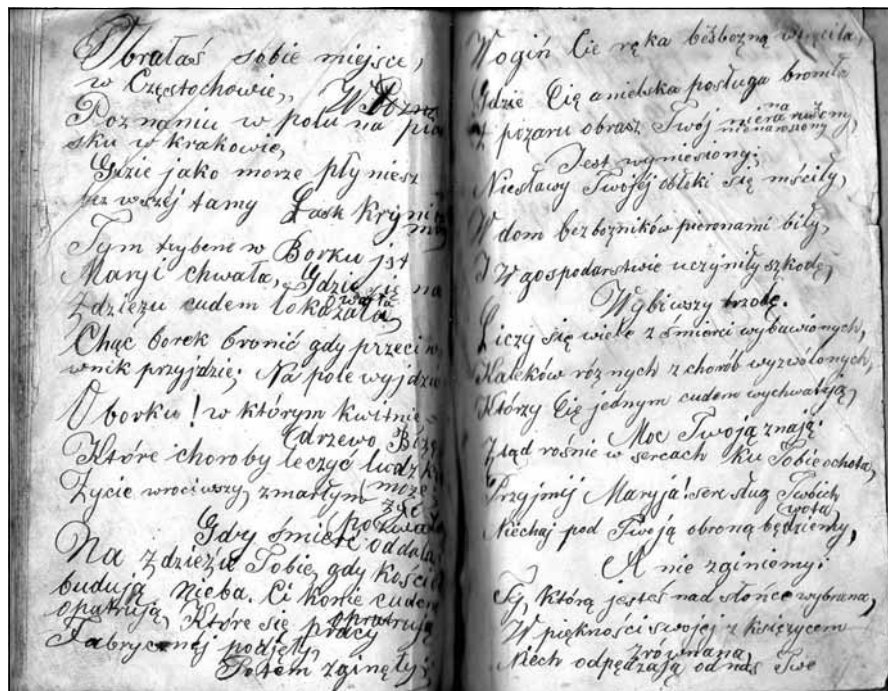 Obrałaś sobie miejsce,
w Częstochowie, W Pozna
Poznaniu w polu na pia
sku w krakowie,
Gdzie jako morze płyniesz
bez wszéj tamy Łask krynico
Tym trybem w Borku jst
Maryi chwała, Gdzie się na
Zdzieżu cudem lokowała
Chąc borek bronić gdy przeci w
wnik przyjdzie; Na pole wyjdzie
O borku! w którym kwitnie
(drzewo Boże
Które choroby leczyć ludzkie
Życie wrociwszy, zmarłym (może
żyć
(pozwala
Gdy śmierć oddala
Na Zdzieżu Tobie, gdy kości
budują Nieba. Ci konie cudem
opatrują, Które się pracy
opatrują
Fabrycznéj podjęły,
Potém zginęły;
Wogiń Cie ręka bezbożną wrzuciła,
Gdzie Cię anielska posługa broniła
Z pożaru obrasz Twój nienaruszony,
Jest wyniesiony;
Niesławy Twojéj obłoki się mściły,
W dom bezbożników pieronami biły,
I W gospodarstwie uczyniły szkodę,
Wybiwszy trzodę.
Liczy się wiele z śmierci wybawionych,
Kaleków róznych z chorób wyzwólonych,
Którzy Cię jednym cudem wychwalają,
Moc Twoją znają.
Ztąd rośnie w sercach ku Tobie ochota,
Przyjmij Maryja! serc sług Twoich
(wota,
Niechaj pod Twoją obroną będziemy,
A nie zginiemy;
Ty, którą jesteś nad słońce wybrana,
W piękności swojej z księżycem
zrównana,
Niech odpędzają od nas Twe